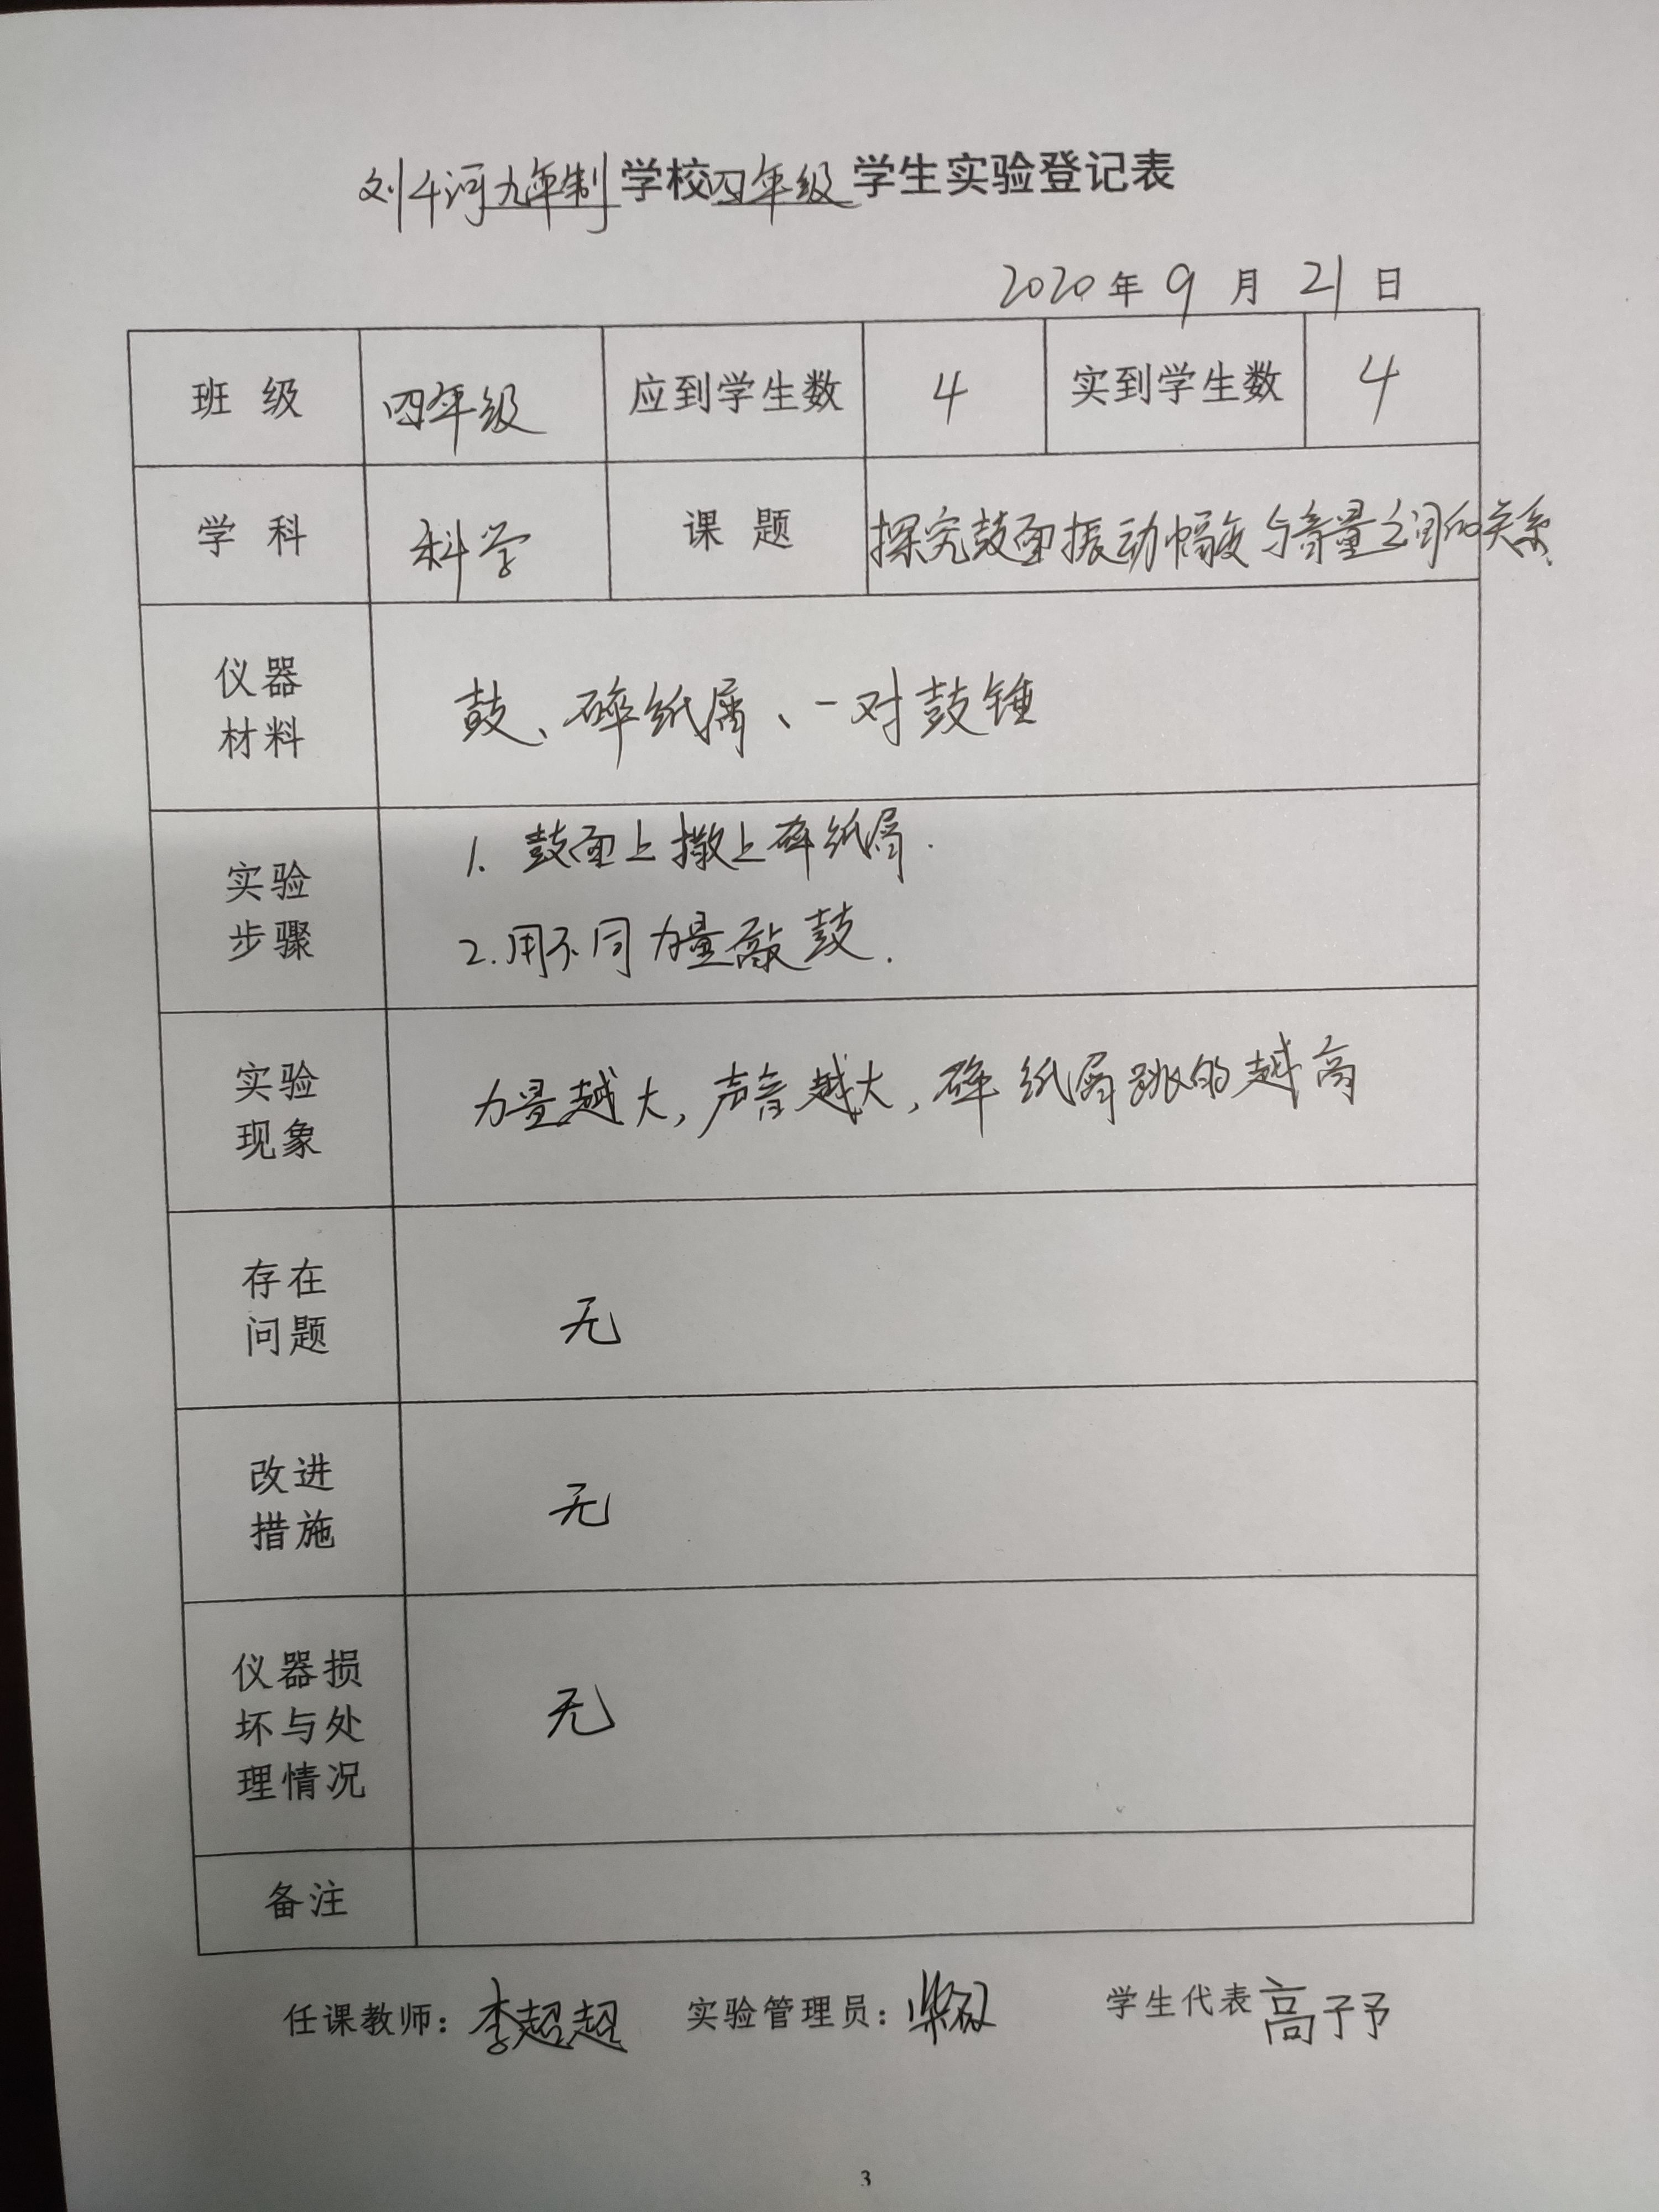 刘千河九年制学校四年级学生实验登记表
2020年9月21日
班级 四年级 应到学生数 4 实到学生数 4
学科 科学 课题 探究鼓面振动幅度与音量之间的关系.
仪器
材料
鼓、碎纸屑、一对鼓锤
实验
步骤
1. 鼓面上撒上碎纸屑.
2.用不同力量敲鼓.
实验
现象
力量越大,声音越大,碎纸屑跳的越高
存在
问题
无
改进
措施
无
仪器损
坏与处
理情况
无
备注
任课教师:李超超 实验管理员: 学生代表高子予
3